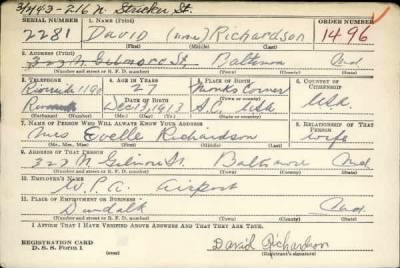 3/1/43-216 N. Stricker St.
SERIAL NUMBER 1. NAME (Print) ORDER NUMBER
2281 David (none) Richardson 1496
(First) (Middle) (Last)
2. ADDRESS (Print)
323 N. Gilmore St. Baltimore Md
(Number and street or R. F. D. number) (Town) (County) (State)
3. TELEPHONE 4. AGE IN YEARS 5. PLACE OF BIRTH 6. COUNTRY OF CITIZENSHIP
Riverside 1190 27 Monks Corner USA
DATE OF BIRTH
Dec 13, 1913 S.C. USA
(Exchange) (Number) (Mo.) (Day) (Yr.) (State or country)
7. NAME OF PERSON WHO WILL ALWAYS KNOW YOUR ADDRESS 8. RELATIONSHIP OF THAT PERSON
Mrs Evelle Richardson wife
(Mr., Mrs., Miss) (First) (Middle) (Last)
9. ADDRESS OF THAT PERSON
323 N Gilmore St. Baltimore Md
(Number and street or R. F. D. number) (Town) (County) (State)
10. EMPLOYER'S NAME
W.P.A. airport
11. PLACE OF EMPLOYMENT OR BUSINESS
Dundalk Md.
(Number and street or R. F. D. number) (Town) (County) (State)
I AFFIRM THAT I HAVE VERIFIED ABOVE ANSWERS AND THAT THEY ARE TRUE.
REGISTRATION CARD
D. S. S. Form 1
David Richardson
(Registrant's signature)